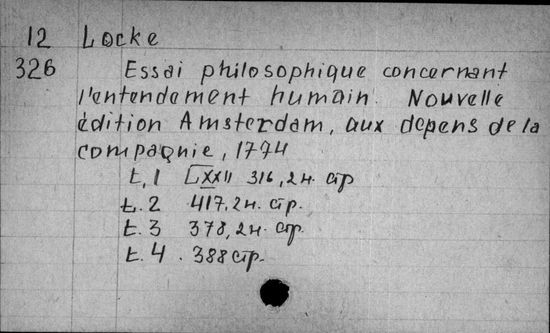 12 Locke
326 Essai philosophique concernant
l'entendement humain. Nouvelle
édition Amsterdam, aux depens de la
compagnie, 1774
t. 1 LXXII 316, 2 н. стр
t. 2 417, 2 н. стр.
t. 3 378, 2 н. стр.
t. 4. 388 стр.